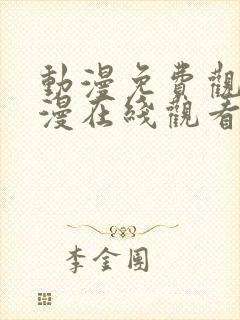 動漫免費觀
漫在綫觀看
李金圍